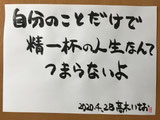 自分のことだけで
精一杯の人生なんて
つまらないよ
2020.4.28 高木いさお